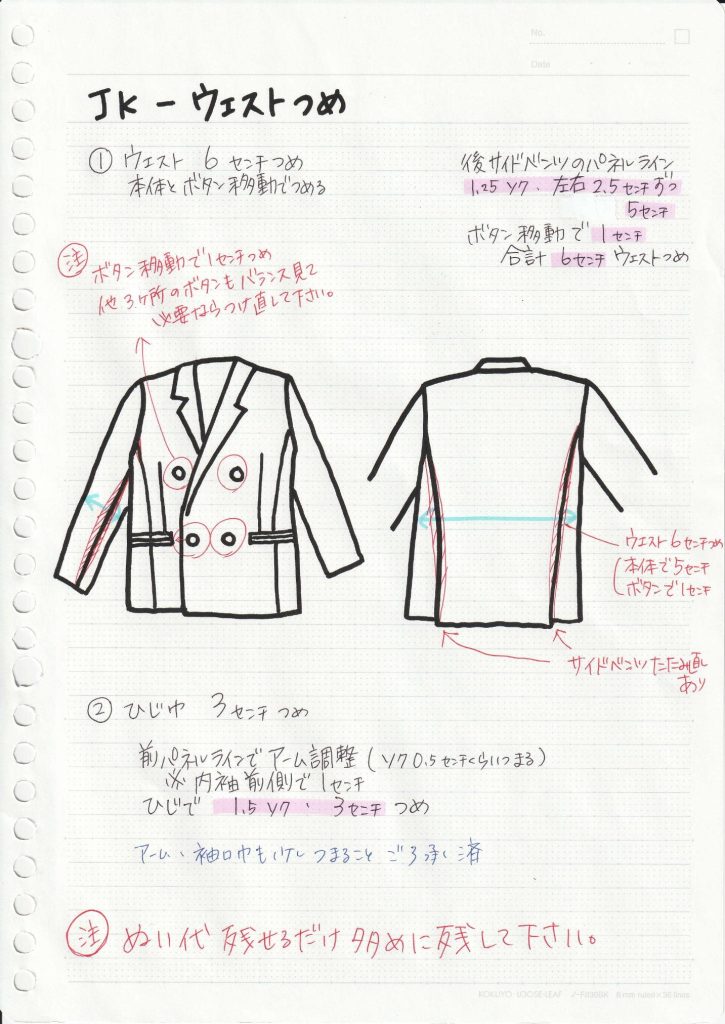 No.
Date
JK－ウェストつめ
① ウェスト 6センチつめ
本体とボタン移動でつめる
後サイドベンツのパネルライン
1.25 ワク・左右 2.5センチずつ
5センチ
ボタン移動で 1センチ
合計 6センチ ウェストつめ
注 ボタン移動で1センチつめ
他3ヶ所のボタンもバランス見て
必要ならつけ直して下さい。
ウエスト6センチつめ
本体で5センチ
ボタンで1センチ
サイドベンツたたみ直し
あり
② ひじ巾 3センチつめ
前パネルラインでアーム調整(ワク0.5センチくらいつまる)
※内袖前側で1センチ
ひじで 1.5ワク・3センチつめ
アーム、袖口巾も つまること ご了承済
注 ぬい代 残せるだけ 多めに残して下さい。
KOKUYO LOOSE-LEAF ノ-F836BK 6mm ruled×36 lines